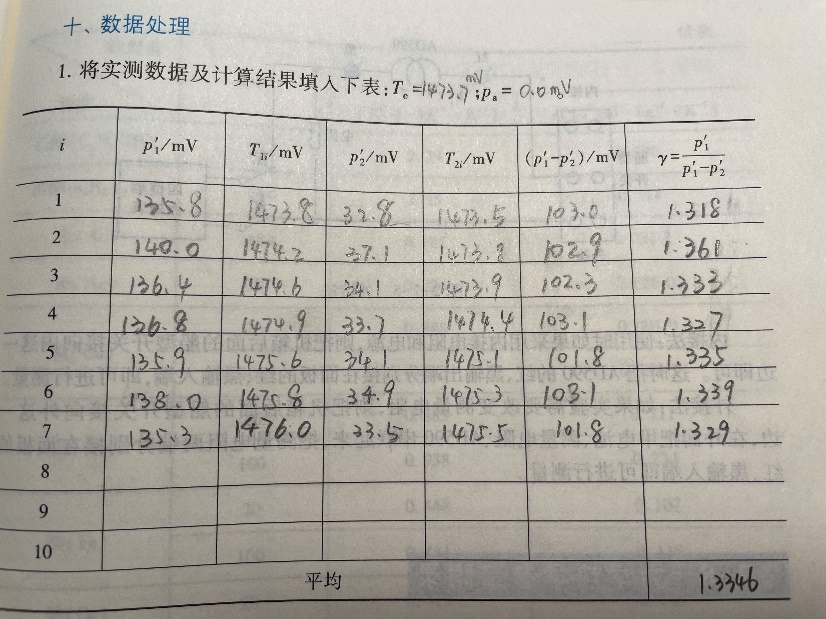 十、数据处理
1. 将实测数据及计算结果填入下表:Te=1473.7mV;pa=0.0mV
i p′1/mV T1i/mV p′2/mV T2i/mV (p′1-p′2)/mV γ=p′1/(p′1-p′2)
1 135.8 1473.8 32.8 1473.5 103.0 1.318
2 140.0 1474.2 37.1 1473.8 102.9 1.361
3 136.4 1474.6 34.1 1473.9 102.3 1.333
4 136.8 1474.9 33.7 1474.4 103.1 1.327
5 135.9 1475.6 34.1 1475.1 101.8 1.335
6 138.0 1475.8 34.9 1475.3 103.1 1.339
7 135.3 1476.0 33.5 1475.5 101.8 1.329
8
9
10
平均 1.3346